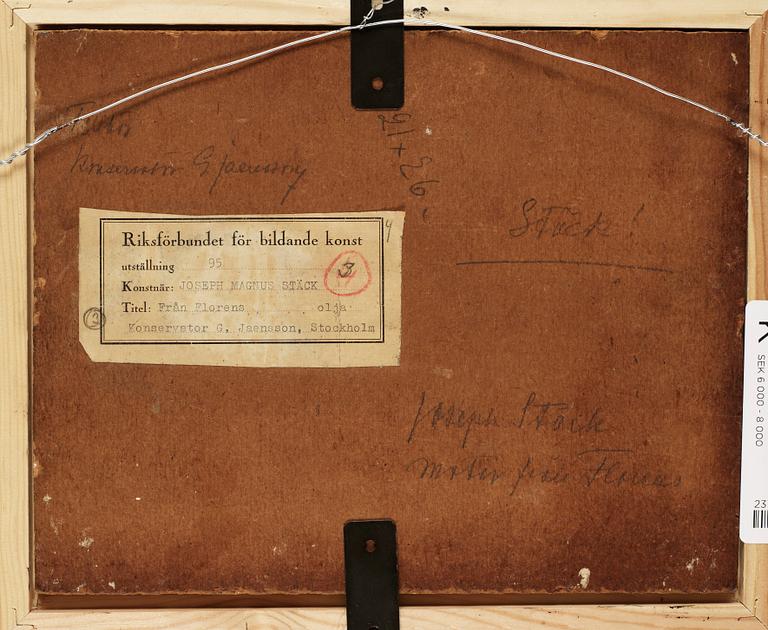 Konservator G Jaensson
21 + 26
Stäck!
4
Riksförbundet för bildande konst
utställning 95
3
Konstnär: JOSEPH MAGNUS STÄCK
Titel: Från Florens olja
2
Konservator G. Jaensson, Stockholm
Joseph Stäck
Motiv från Florens
K
SEK 6 000 - 8 000
23